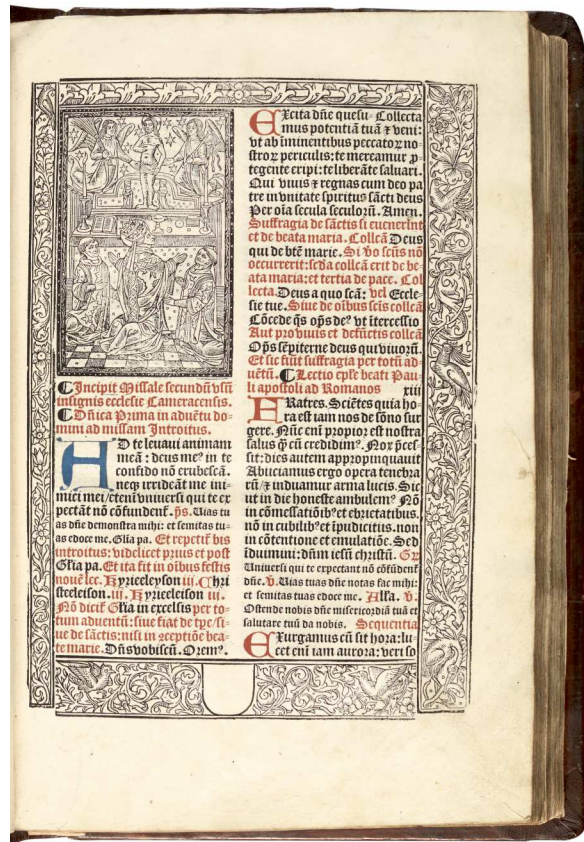 ¶ Incipit Missale secundū vsū
insignis ecclesie Cameracensis.
¶ Dñica Prima in aduētu do-
mini ad missam Introitus.
AD te leuaui animam
meā : deus meꝰ in te
confido nō erubescā.
neqꝫ irrideāt me ini-
mici mei/eteni vniuersi qui te ex
pectāt nō cōfundent. p̄s. Uias tu
as dñe demonstra mihi: et semitas tu-
as edoce me. Glia pa. Et repetit bis
introitus: videlicet prius et post
Glia pa. Et ita fit in oībus festis
nouē lec. Kyrieeleyson iii. Chri
steeleison. iii. Kyrieeleison iii.
Nō dicit Glia in excelsis per to-
tum aduentū: siue fiat de tpe/si-
ue de sāctis: nisi in receptiōe bea-
te marie. Dñs vobiscū. Oremꝰ.
EXcita dñe quesu- Collecta
mus potentiā tuā ⁊ veni:
vt ab iminentibus peccatoꝝ no-
stroꝝ periculis: te mereamur ꝓ-
tegente eripi: te liberāte saluari.
Qui viuis ⁊ regnas cum deo pa
tre in vnitate spiritus sācti deus
Per oīa secula seculoꝝ. Amen.
Suffragia de sāctis si euenerint
et de beata maria. Collcā Deus
qui de btē marie. Si ꝟo scūs nō
occurrerit: scdā collcā erit de be-
ata maria: et tertia de pace. Col
lecta. Deus a quo scā: vel Eccle-
sie tue. Siue de oībus scis collcā
Cōcede q̄s op̄s deꝰ vt itercessio
Aut pro viuis et defūctis collcā
Op̄s sēpiterne deus qui viuoꝝ.
Et sic fiūt suffragia per totū ad
uētū. ¶ Lectio epl̄e beati Pau-
li apostoli ad Romanos xiii
FRatres. Sciētes quia ho-
ra est iam nos de sōno sur
gere. Nūc enī propio: est nostra
salus q̄ȝ cū credidimꝰ. Nox p̄ces-
sit: dies autem appropinquauit
Abiiciamus ergo opera tenebra
rū/⁊ induamur arma lucis. Sic
vt in die honeste ambulemꝰ Nō
in comessatiōibꝰ et ebrietatibus.
nō in cubilibꝰ et ipudicitiis. non
in cōtentione et emulatiōe. Sed
iduimini: dūm iesū christū. Gr
Uniuersi qui te expectant nō cōfūdent
dñe. ℣. Uias tuas dñe notas fac mihi:
et semitas tuas edoce me. Alla. ℣.
Ostende nobis dñe misericordiā tuā et
salutare tuū da nobis. Sequentia
EXurgamus cū sit hora: lu-
cet enī iam aurora: veri so